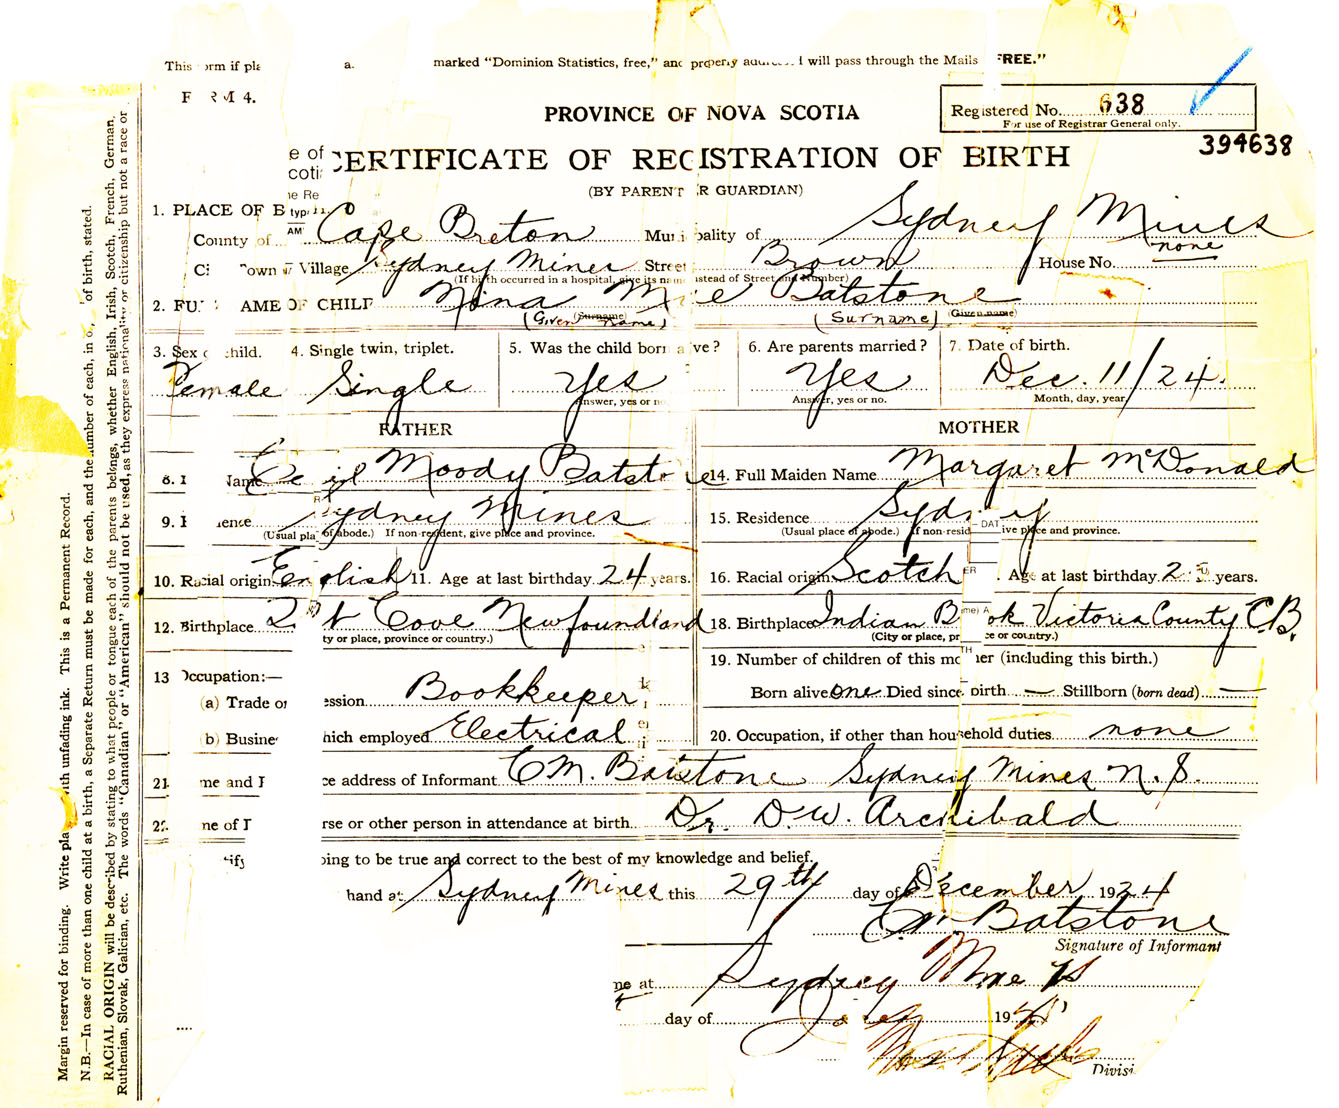 This form if pla a. marked "Dominion Statistics, free," and properly add I will pass through the Mails FREE."
FORM 4.
PROVINCE OF NOVA SCOTIA
Registered No. 638
For use of Registrar General only.
394638
CERTIFICATE OF REGISTRATION OF BIRTH
(BY PARENT R GUARDIAN)
1. PLACE OF B
County of Cape Breton Municipality of Sydney Mines
Town Village Sydney Mines Street Brown House No. none
(If birth occurred in a hospital, give its name instead of Street and Number)
2. FU AME OF CHILD Nina M e Batstone
(Given name) (Surname) (Surname) (Given name)
3. Sex child. 4. Single twin, triplet. 5. Was the child born a ve? 6. Are parents married? 7. Date of birth.
Female Single Yes Yes Dec. 11/24.
Answer, yes or no Answer, yes or no. Month, day, year
FATHER MOTHER
8. Name Cecil Moody Batstone 14. Full Maiden Name Margaret McDonald
9. ence Sydney Mines 15. Residence Sydney
(Usual pla of abode.) If non-resident, give place and province. (Usual place of abode.) If non-resid ive place and province.
10. Racial origin English 11. Age at last birthday 24 years. 16. Racial origin Scotch . Age at last birthday 2 years.
12. Birthplace Cove Newfoundland 18. Birthplace Indian B ok Victoria County C.B.
ty or place, province or country.) (City or place, pr ce or country.)
13 Occupation:— 19. Number of children of this mo her (including this birth.)
(a) Trade or ession Bookkeeper Born alive one Died since birth — Stillborn (born dead) —
(b) Busine hich employed Electrical 20. Occupation, if other than household duties none
21. me and P ce address of Informant C M. Batstone Sydney Mines N. S.
22. me of rse or other person in attendance at birth. Dr. D. W. Archibald
tify oing to be true and correct to the best of my knowledge and belief.
hand at Sydney Mines this 29th day of December 1924
C. M. Batstone
Signature of Informant
ne at Sydney Mines
day of 19
Divisi
Margin reserved for binding. Write pla with unfading ink. This is a Permanent Record.
N.B.—In case of more than one child at a birth, a Separate Return must be made for each, and the number of each, in o, of birth, stated.
RACIAL ORIGIN will be described by stating to what people or tongue each of the parents belongs, whether English, Irish, Scotch, French, German,
Ruthenian, Slovak, Galician, etc. The words "Canadian" or "American" should not be used, as they express nationality or citizenship but not a race or